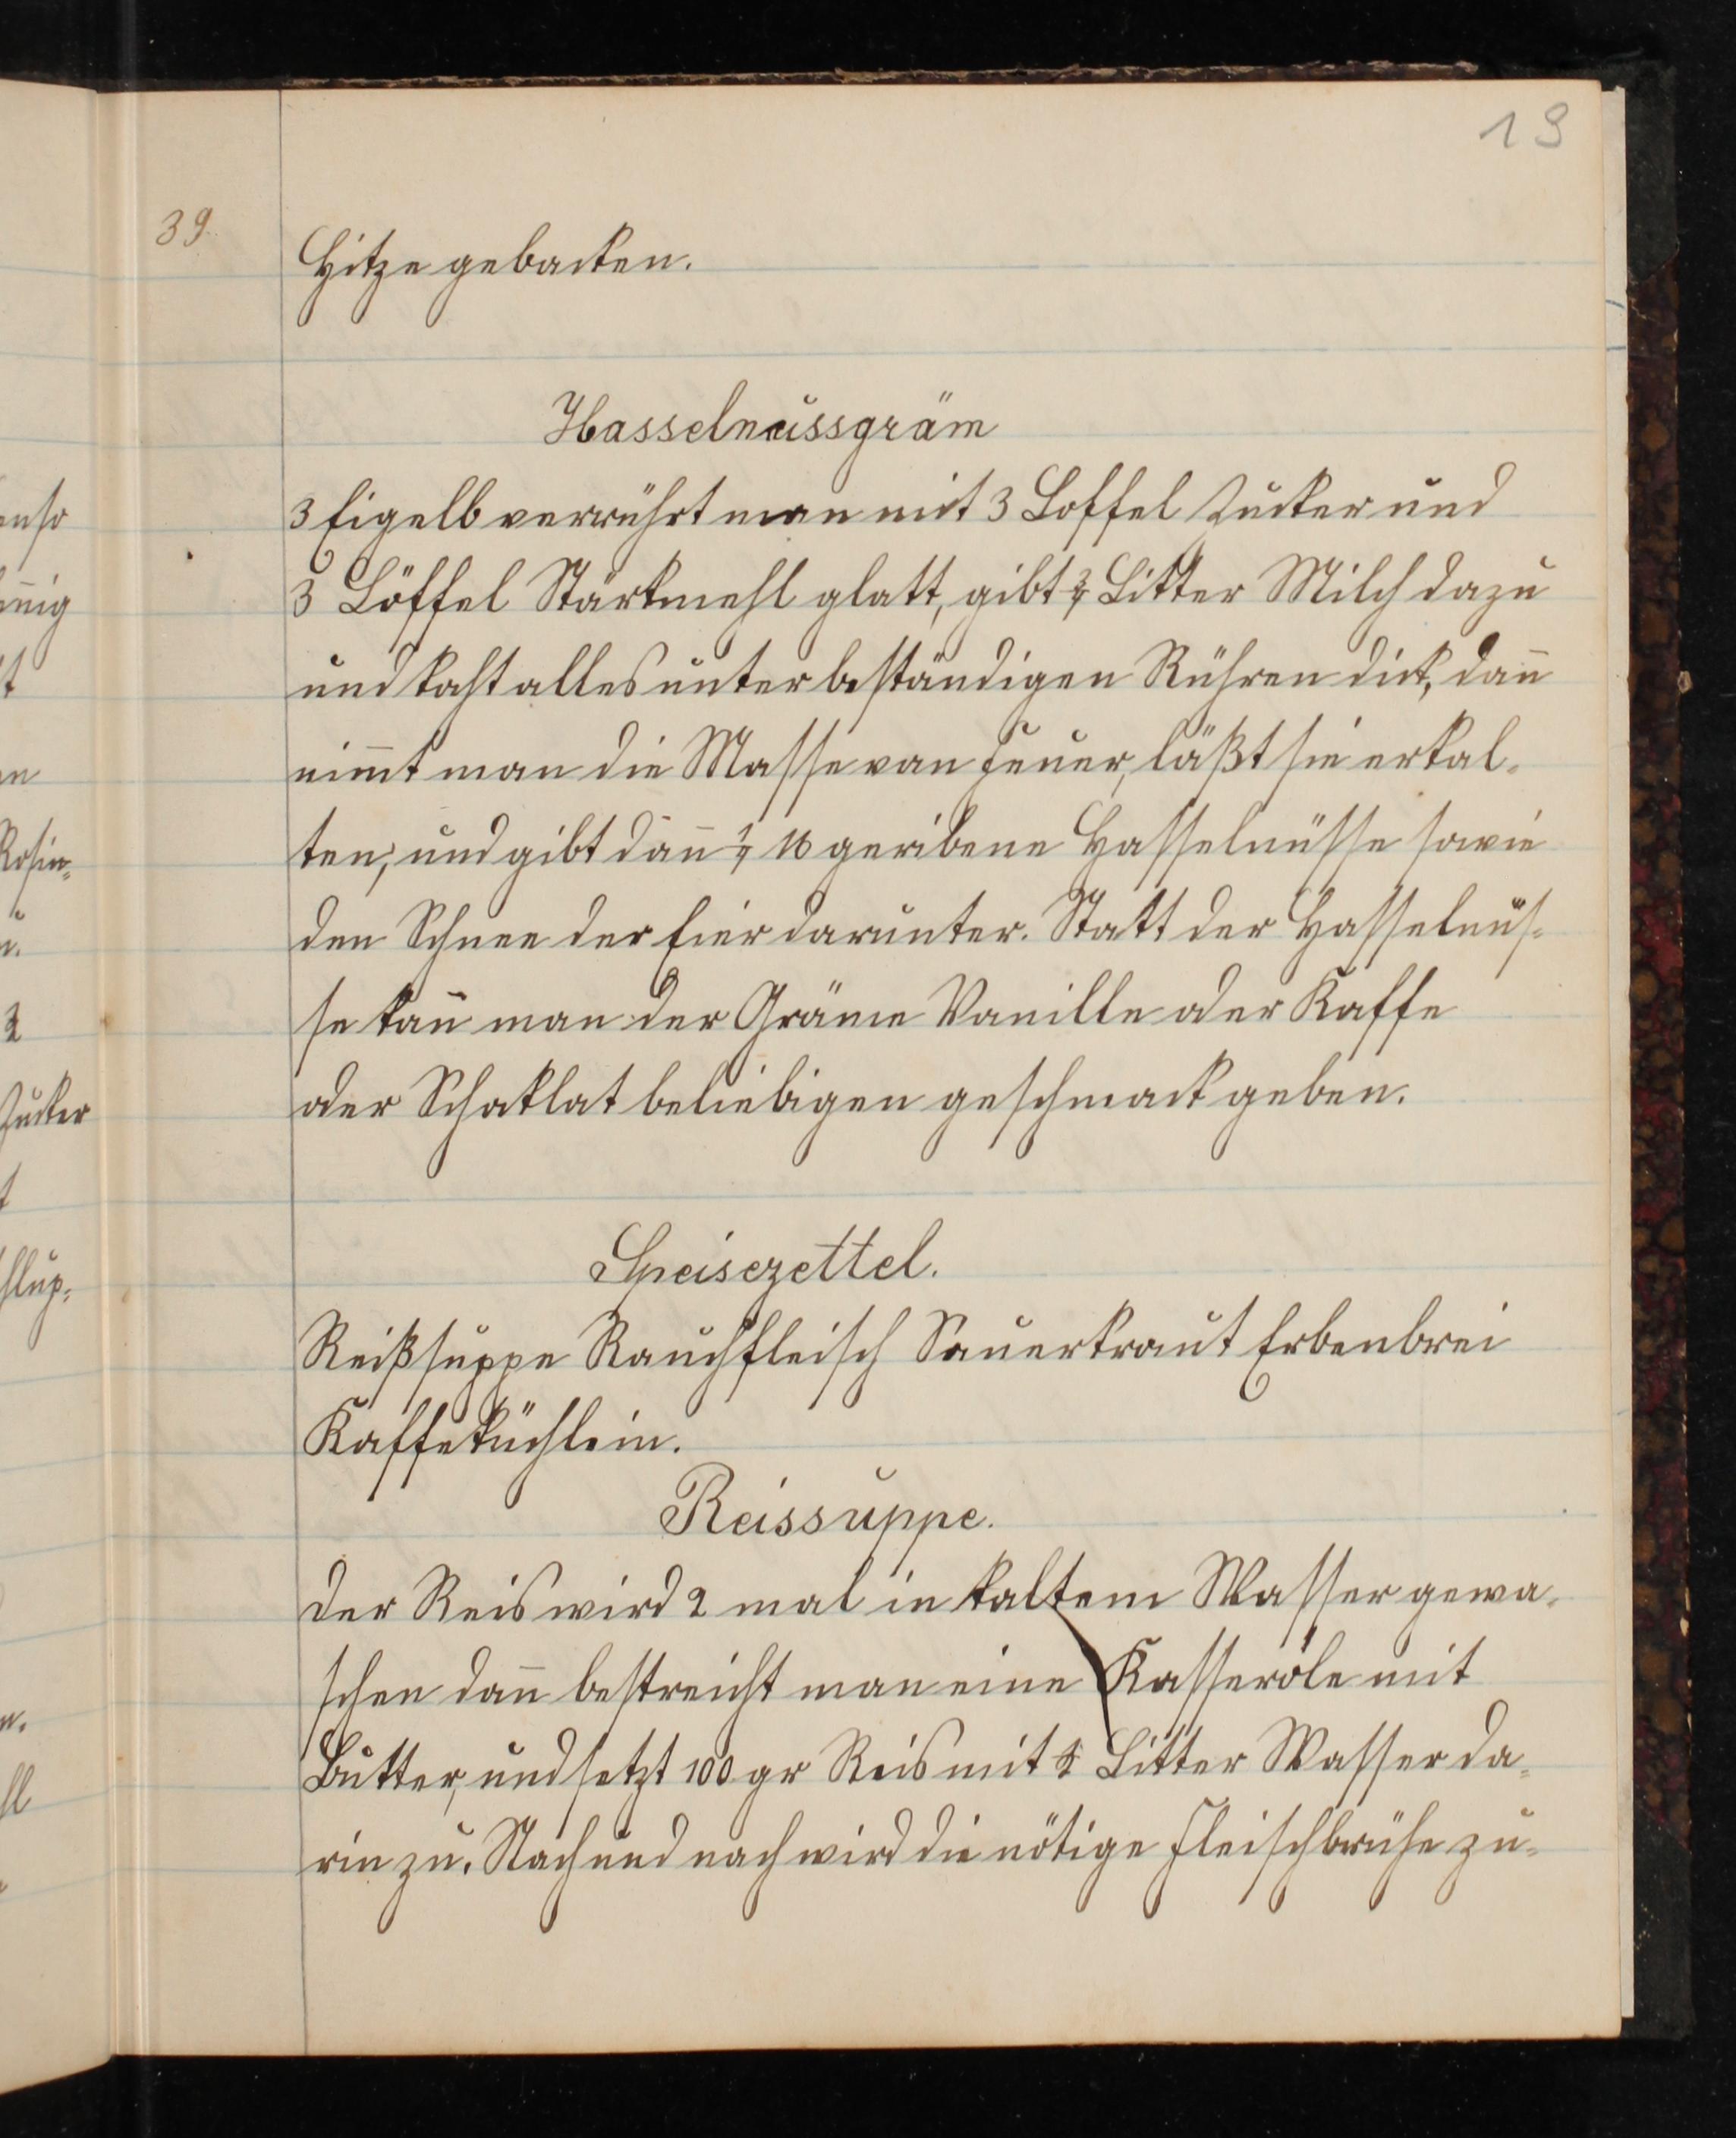 19
39.
Hitze gebacken.
Hasselnussgräm
3 Eigelb verrührt man mit 3 Loffel Zucker und
3 Löffel Stärkmehl glatt, gibt ¾ Litter Milch dazu
und kocht alles unter beständigen Rühren dick, dan̄
nim̄t man die Masse von Feuer, läßt sie erkal-
ten, und gibt dan̄ ¼ ℔ geribene Hasselnüsse sowie
den Schnee der Eier darunter. Statt der Hasselnüs-
se kan̄ man der Gräme Vanille oder Kaffe
oder Schoklat beliebigen geschmack geben.
Speisezettel.
Reißsuppe Rauchfleisch Sauerkraut Erbenbrei
Kaffeküchlein.
Reissuppe.
Der Reis wird 2 mal in kaltem Wasser gewa-
schen dan̄ bestreicht man eine Kasseröle mit
Butter, und setzt 100 gr Reis mit Litter Wasser da-
rin zu. Nach und nach wird die nötige Fleischbrühe zu-
enso
t
en
Rosin-
2
Zucker